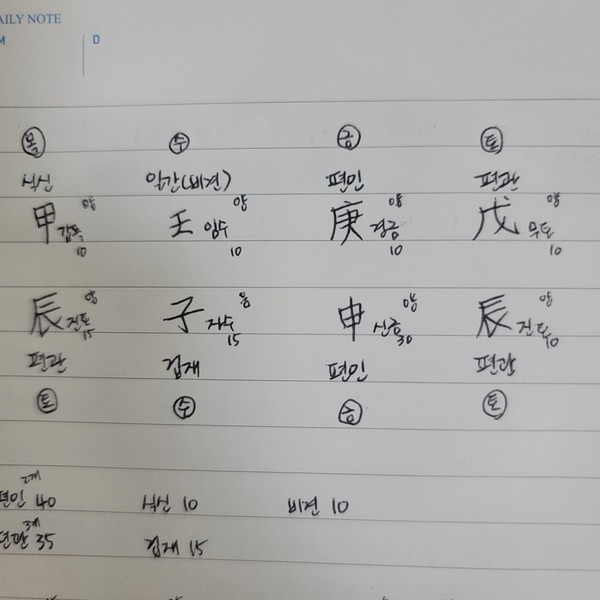 AILY NOTE
M D
목 수 금 토
식신 일간(비견) 편인 편관
甲 갑목 양 10 壬 임수 양 10 庚 경금 양 10 戊 무토 양 10
辰 진토 양 15 子 자수 음 15 申 신금 양 30 辰 진토 양 10
편관 겁재 편인 편관
토 수 금 토
2개
편인 40 식신 10 비견 10
3개
편관 35 겁재 15